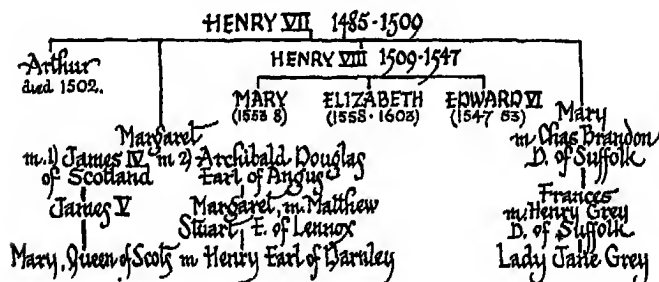 HENRY VII 1485-1509
Arthur
died 1502.
HENRY VIII 1509-1547
MARY
(1553 8)
ELIZABETH
(1558-1603)
EDWARD VI
(1547 53)
Margaret
m. 1) James IV m 2) Archibald Douglas
of Scotland Earl of Angus
James V
Margaret, m. Matthew
Stuart, E. of Lennox
Mary, Queen of Scots m Henry Earl of Darnley
Mary
m Chas Brandon
D. of Suffolk
Frances
m. Henry Grey
D. of Suffolk
Lady Jane Grey